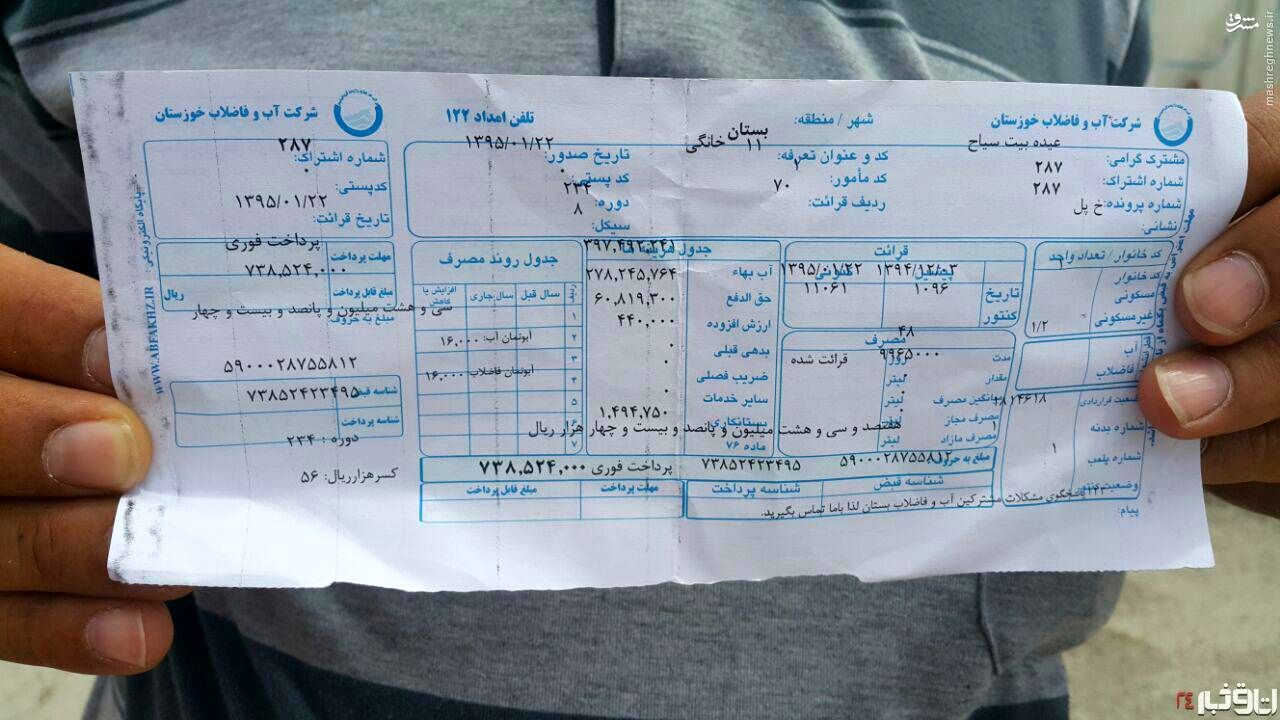 مشرق
mashreghnews.ir
شرکت آب و فاضلاب خوزستان
مشترک گرامی: عبده بیت سیاح
شماره اشتراک: ۲۸۷
شماره پرونده: ۲۸۷
نشانی: خ پل
شهر / منطقه: بستان
کد و عنوان تعرفه: ۱۱ خانگی
کد مأمور: ۲
ردیف قرائت: ۷۰
تلفن امداد ۱۲۲
تاریخ صدور: ۱۳۹۵/۰۱/۲۲
کد پستی: ۰
دوره: ۲۳۴
سیکل: ۸
شرکت آب و فاضلاب خوزستان
شماره اشتراک: ۲۸۷
کدپستی: ۰
تاریخ قرائت: ۱۳۹۵/۰۱/۲۲
کد خانوار / تعداد واحد
کد خانوار
مسکونی ۱
غیرمسکونی
۱/۲
آب
فاضلاب
وضعیت قراردادی
شماره بدنه
شماره پلمب
وضعیت کنتور
۱
پیام:
قرائت
پیشین
کنونی
تاریخ ۱۳۹۴/۱۲/۰۳ ۱۳۹۵/۰۱/۲۲
کنتور ۱۰۹۶ ۱۱۰۶۱
مصرف
مدت ۴۸ روز
مقدار ۹۹۶۵۰۰۰ لیتر
قرائت شده
میانگین مصرف لیتر
مصرف مجاز لیتر
مصرف مازاد لیتر
جدول هزینه ها
آب بهاء ۳۹۷,۴۹۲,۲۴۱
حق الدفع ۲۷۸,۲۴۵,۷۶۴
ارزش افزوده ۶۰,۸۱۹,۳۰۰
بدهی قبلی ۴۴۰,۰۰۰
ضریب فصلی ۰
سایر خدمات ۰
بستانکاری ۰
ماده ۷۶ ۱,۴۹۴,۷۵۰
جدول روند مصرف
ردیف
سال قبل
سال جاری
افزایش یا کاهش
۱
۲
۳
۴
۵
۶
۷
آبونمان آب: ۱۶,۰۰۰
آبونمان فاضلاب ۱۶,۰۰۰
هفتصد و سی و هشت میلیون و پانصد و بیست و چهار هزار ریال
مبلغ به حروف
۵۹۰۰۰۲۸۷۵۵۸۱۲
۷۳۸۵۲۴۲۳۴۹۵
پرداخت فوری
۷۳۸,۵۲۴,۰۰۰
شناسه قبض
شناسه پرداخت
مهلت پرداخت
مبلغ قابل پرداخت
پاسخگوی مشکلات مشترکین آب و فاضلاب بستان لذا باما تماس بگیرید.
مهلت پرداخت
پرداخت فوری
مبلغ قابل پرداخت
۷۳۸,۵۲۴,۰۰۰
ریال
مبلغ به حروف
سی و هشت میلیون و پانصد و بیست و چهار
۵۹۰۰۰۲۸۷۵۵۸۱۲
شناسه قبض
۷۳۸۵۲۴۲۳۴۹۵
شناسه پرداخت
دوره : ۲۳۴
کسرهزارریال: ۵۶
پایگاه الکترونیکی:
WWW.ABFAKHZ.IR
اتاق خبر ۲۴